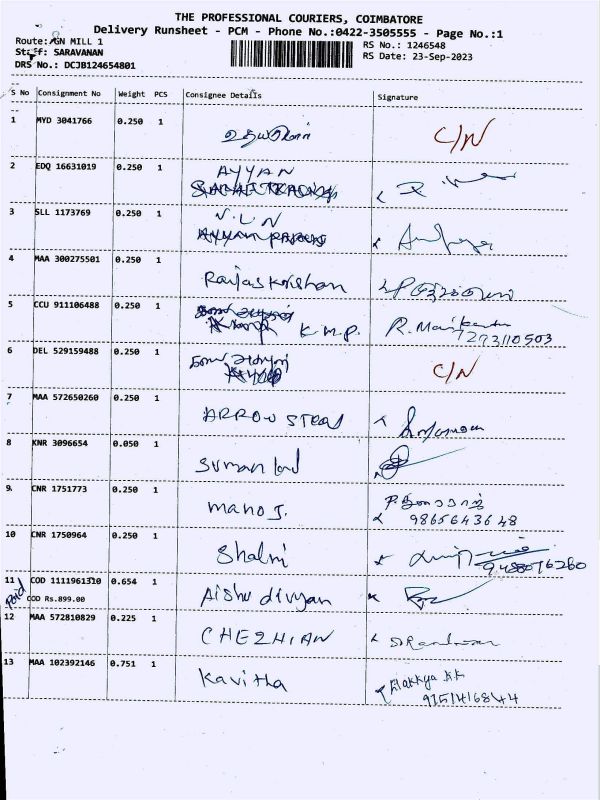 THE PROFESSIONAL COURIERS, COIMBATORE
Delivery Runsheet - PCM - Phone No.:0422-3505555 - Page No.:1
Route: GN MILL 1
RS No.: 1246548
Staff: SARAVANAN
RS Date: 23-Sep-2023
DRS No.: DCJB124654801
S No Consignment No Weight PCS Consignee Details Signature
1 MYD 3041766 0.250 1 உதயமேன் C/N
2 EDQ 16631019 0.250 1 AYYAN
3 SLL 1173769 0.250 1 V.L.N
4 MAA 300275501 0.250 1 Rajaskrishan
5 CCU 911106488 0.250 1 K.M.P. R. Mani
7273110503
6 DEL 529159488 0.250 1 C/N
7 MAA 572650260 0.250 1 ARROW STEEL
8 KNR 3096654 0.050 1 Suman lal
9. CNR 1751773 0.250 1 Mano J.
9865643648
10 CNR 1750964 0.250 1 Shalni
9488076260
11 COD 1111961310 0.654 1 Aishu divyan
Paid COD Rs.899.00
12 MAA 572810829 0.225 1 CHEZHIAN
13 MAA 102392146 0.751 1 Kavitha Elakkya KK
9151416844